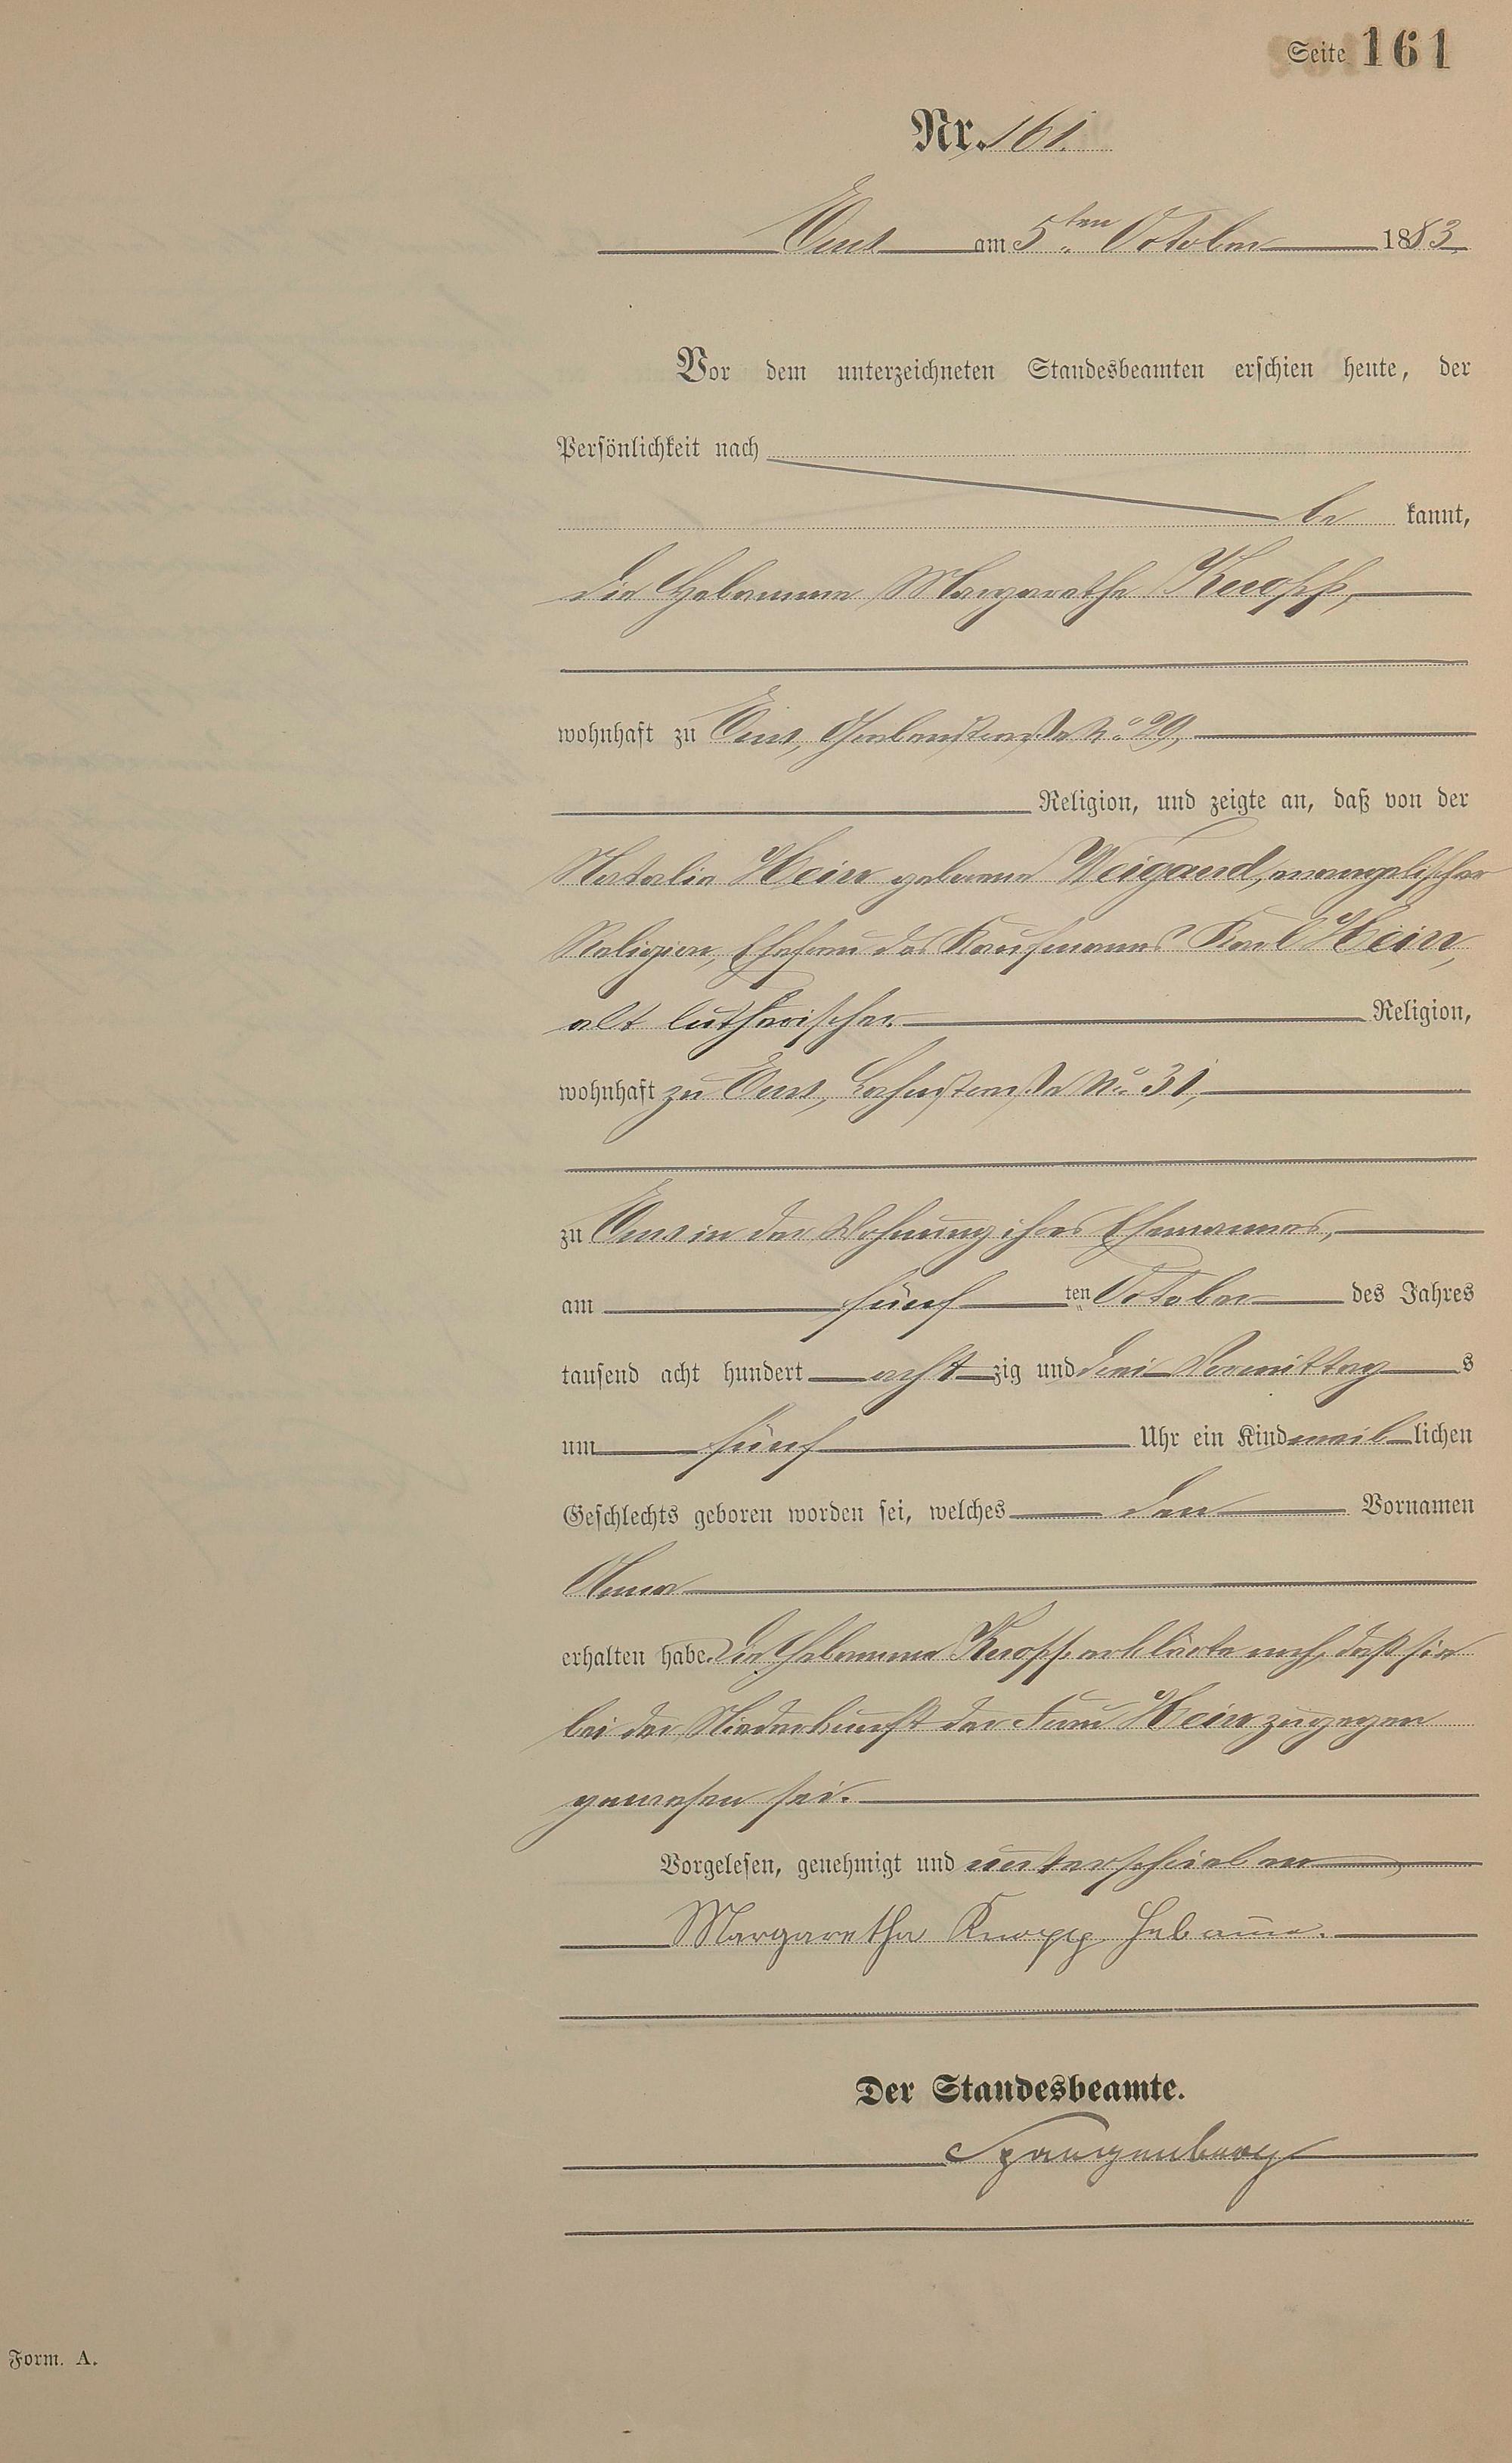 Seite 161
Nr. 161.
Ems am 5ten October 1883.
Vor dem unterzeichneten Standesbeamten erschien heute, der
Persönlichkeit nach
be kannt,
die Hebamme Margarethe Knopp,
wohnhaft zu Ems, Grabenstraße No. 29,
Religion, und zeigte an, daß von der
Natalie Hein geborene Weigand, evangelischer
Religion, Ehefrau des Kaufmanns Karl Hein,
alt lutherischer Religion,
wohnhaft zu Ems, Lahnstraße No. 31,
zu Ems in der Wohnung ihres Ehemannes,
am fünf ten October des Jahres
tausend acht hundert acht zig und drei Vormittag s
um fünf Uhr ein Kind weib lichen
Geschlechts geboren worden sei, welches den Vornamen
Anna
erhalten habe. Die Hebamme Knopp erklärte noch, daß sie
bei der Niederkunft der Frau Hein zugegen
gewesen sei.
Vorgelesen, genehmigt und unterschrieben
Margaretha Knopp Hebame.
Der Standesbeamte.
Spangenberg
Form. A.